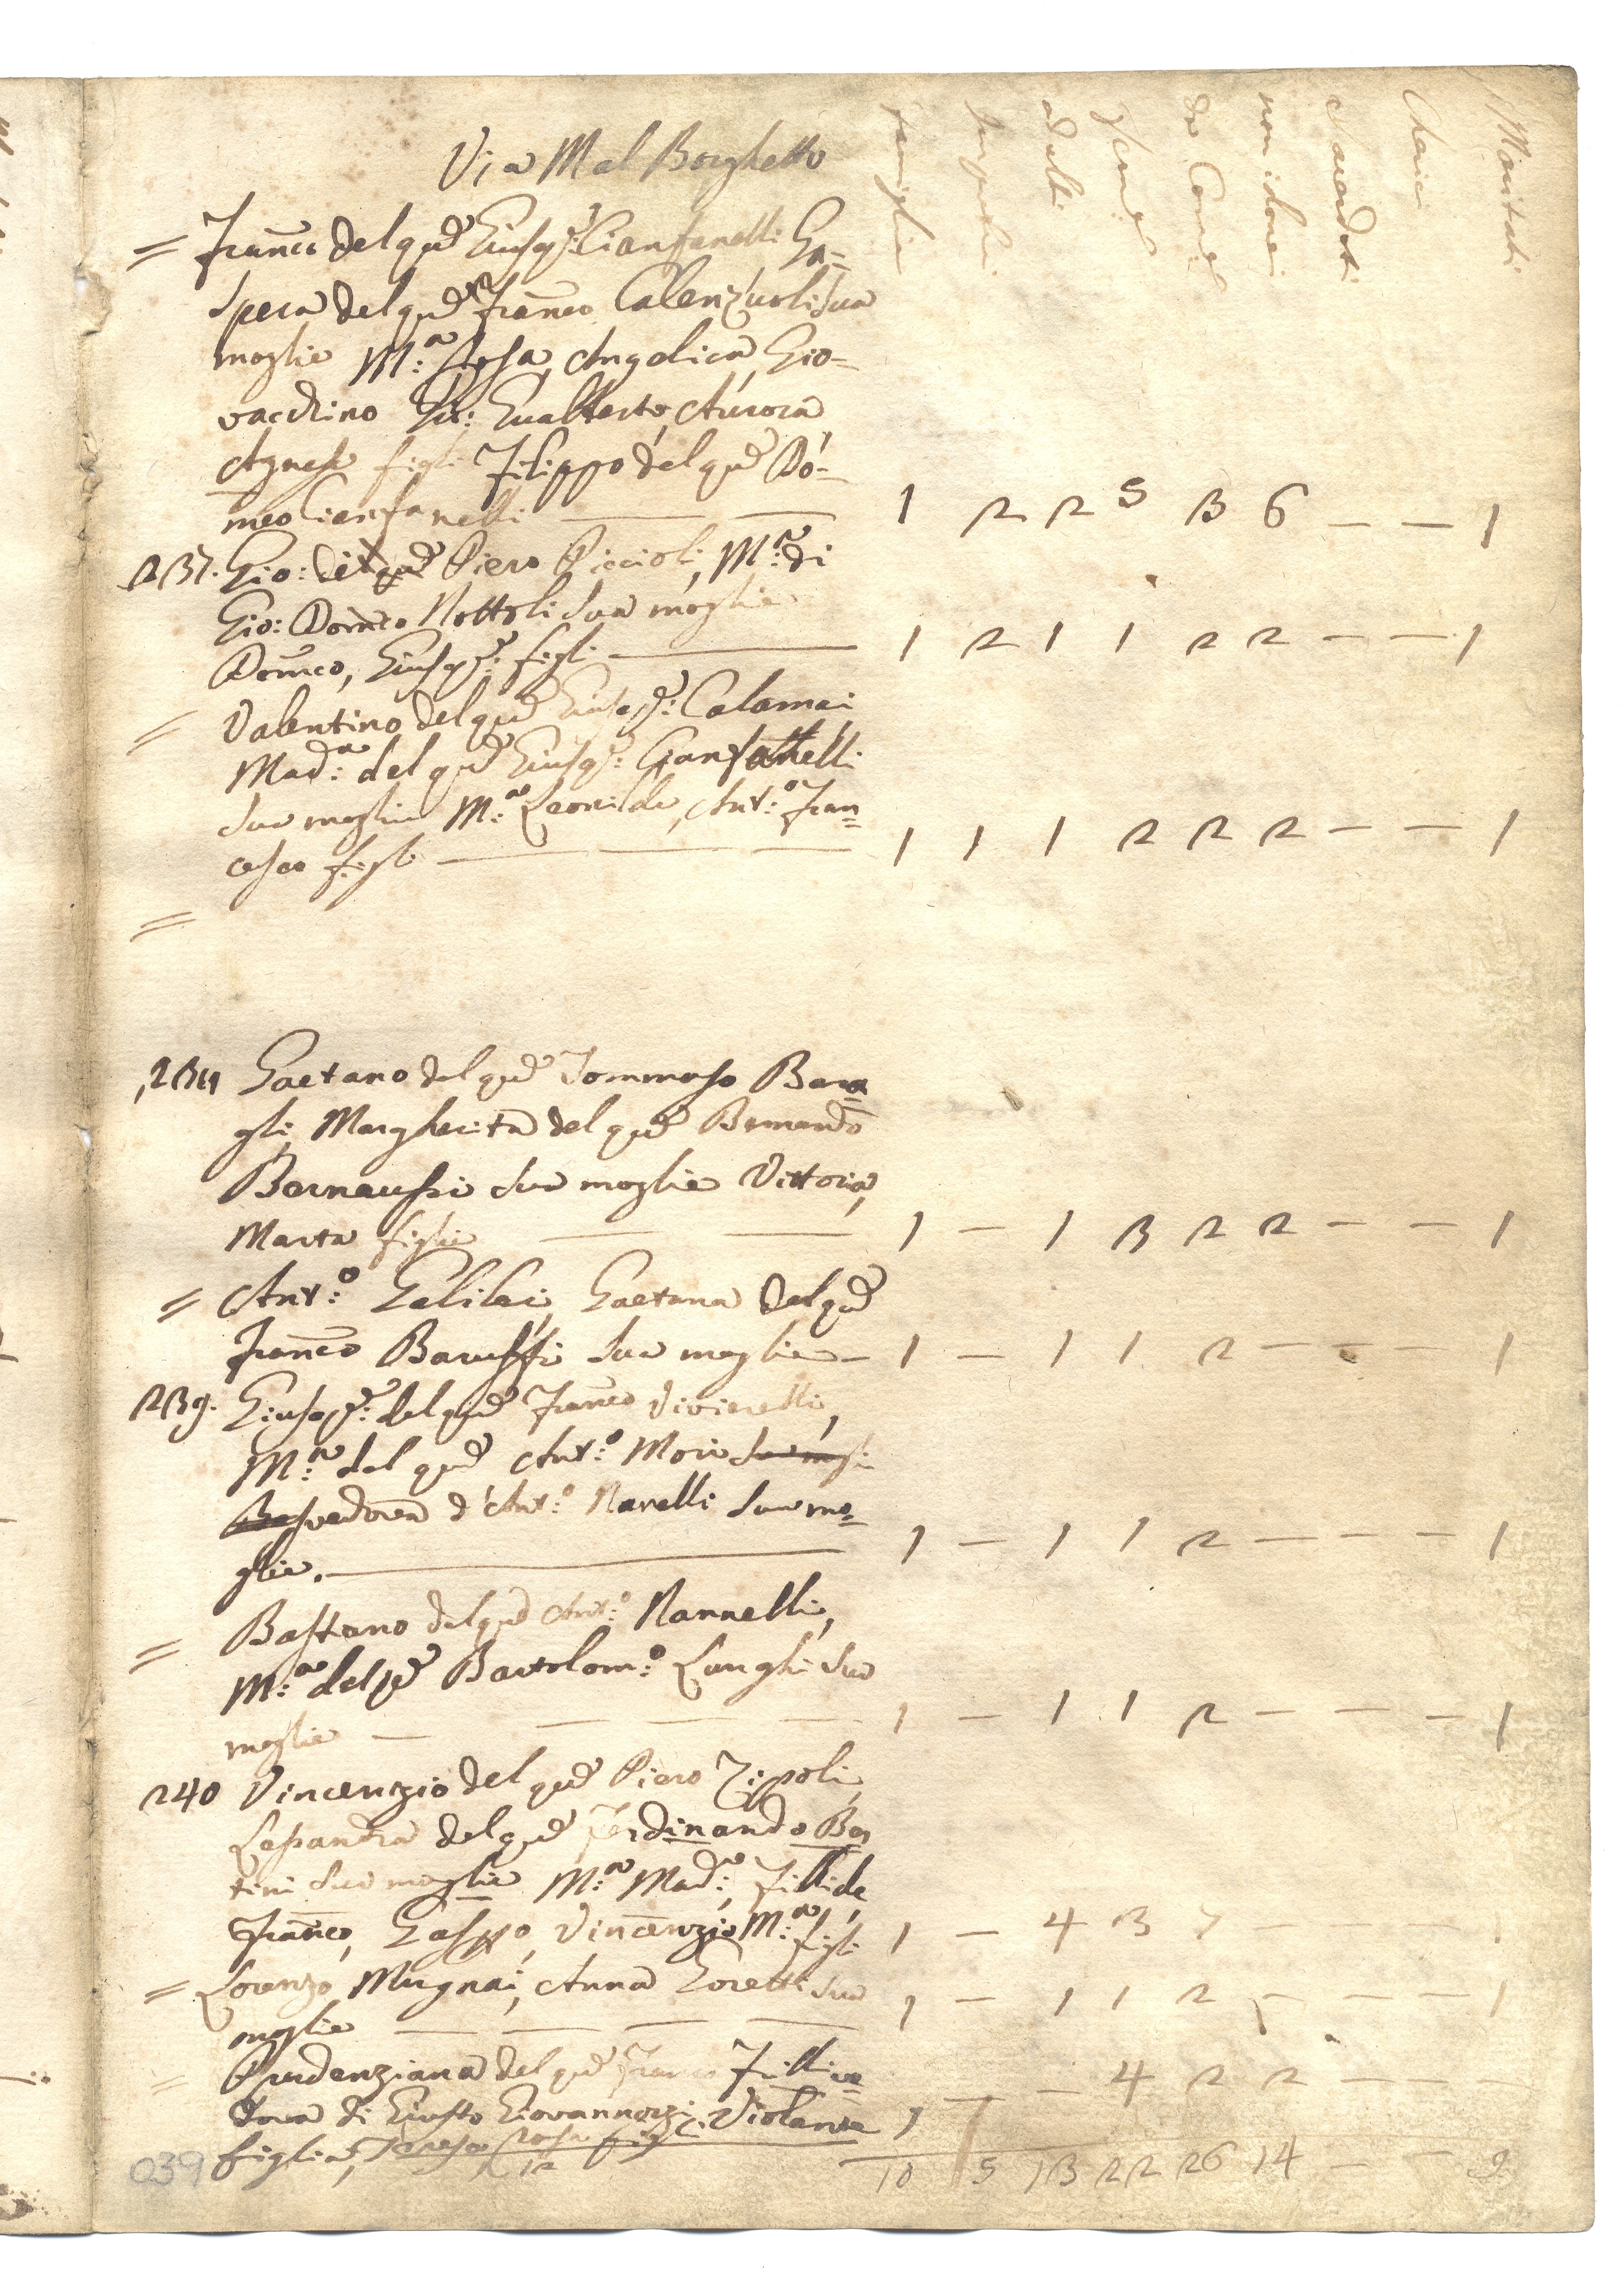 famiglie Impuberi adulti Femmi da Comu non idonei Sacerdoti Cherici Maritati
Via Mal Borghetto
= Franco del qud Giusepe: Cianfanelli Ga=
spera del qud Franco Calenzuoli sua
moglie M:a Rosa, Angelica, Gio=
vacchino Gio: Gualberto, Aurora,
Agnese figli Filippo del qud Do=
meo Cianfanelli — — 1 2 2 5 3 6 — — 1
237. Gio: del qud Piero Piccioli, M:a di
Gio: Domco Nottoli sua moglie
Domco, Giusepe: figli — 1 2 1 1 2 2 — — 1
= Valentino del qud Giusepe: Calamai
Mad:a del qud Giusepe: Cianfanelli
sua moglie M:a Leonilde, Ant:o Fran=
cesco figli — — — 1 1 1 2 2 2 — — 1
=
238 Gaetano del qud Tommaso Bara=
gli, Margherita del qud Bernardo
sua moglie Vittoria,
Marta figlie — — 1 — 1 3 2 2 — — 1
= Ant:o Galilei, Gaetana del qud
Franco Baruffi sua moglie — 1 — 1 1 2 — — — 1
239. Giusepe: del qud Franco Vivierelli,
M:a del qud Ant:o Mori sua mogli
vedova d'Ant:o Nanelli sua mo=
glie. — 1 — 1 1 2 — — — 1
= Bastiano del qud Ant:o Nannelli,
M:a del qd Bartolom:o Langhi sua
moglie — — — — 1 — 1 1 2 — — — 1
240 Vincenzio del qud Piero Zipoli,
Lesandra del qud Ferdinando Ber
tini sua moglie M:a Mad:a, Fillide,
Franco, Gasppo, Vincenzio M:a figli 1 — 4 3 7 — — — 1
= Lorenzo Mugnai, Anna Goretti sua
moglie — — — — 1 — 1 1 2 — — — 1
= Prudenziana del qud Franco Filli ve=
dova di Giusto Giovannozzi, Violante 1 — — 4 2 2 — — —
figlia, Teresa Rosa figli
10 5 13 22 26 14 — — 9
039